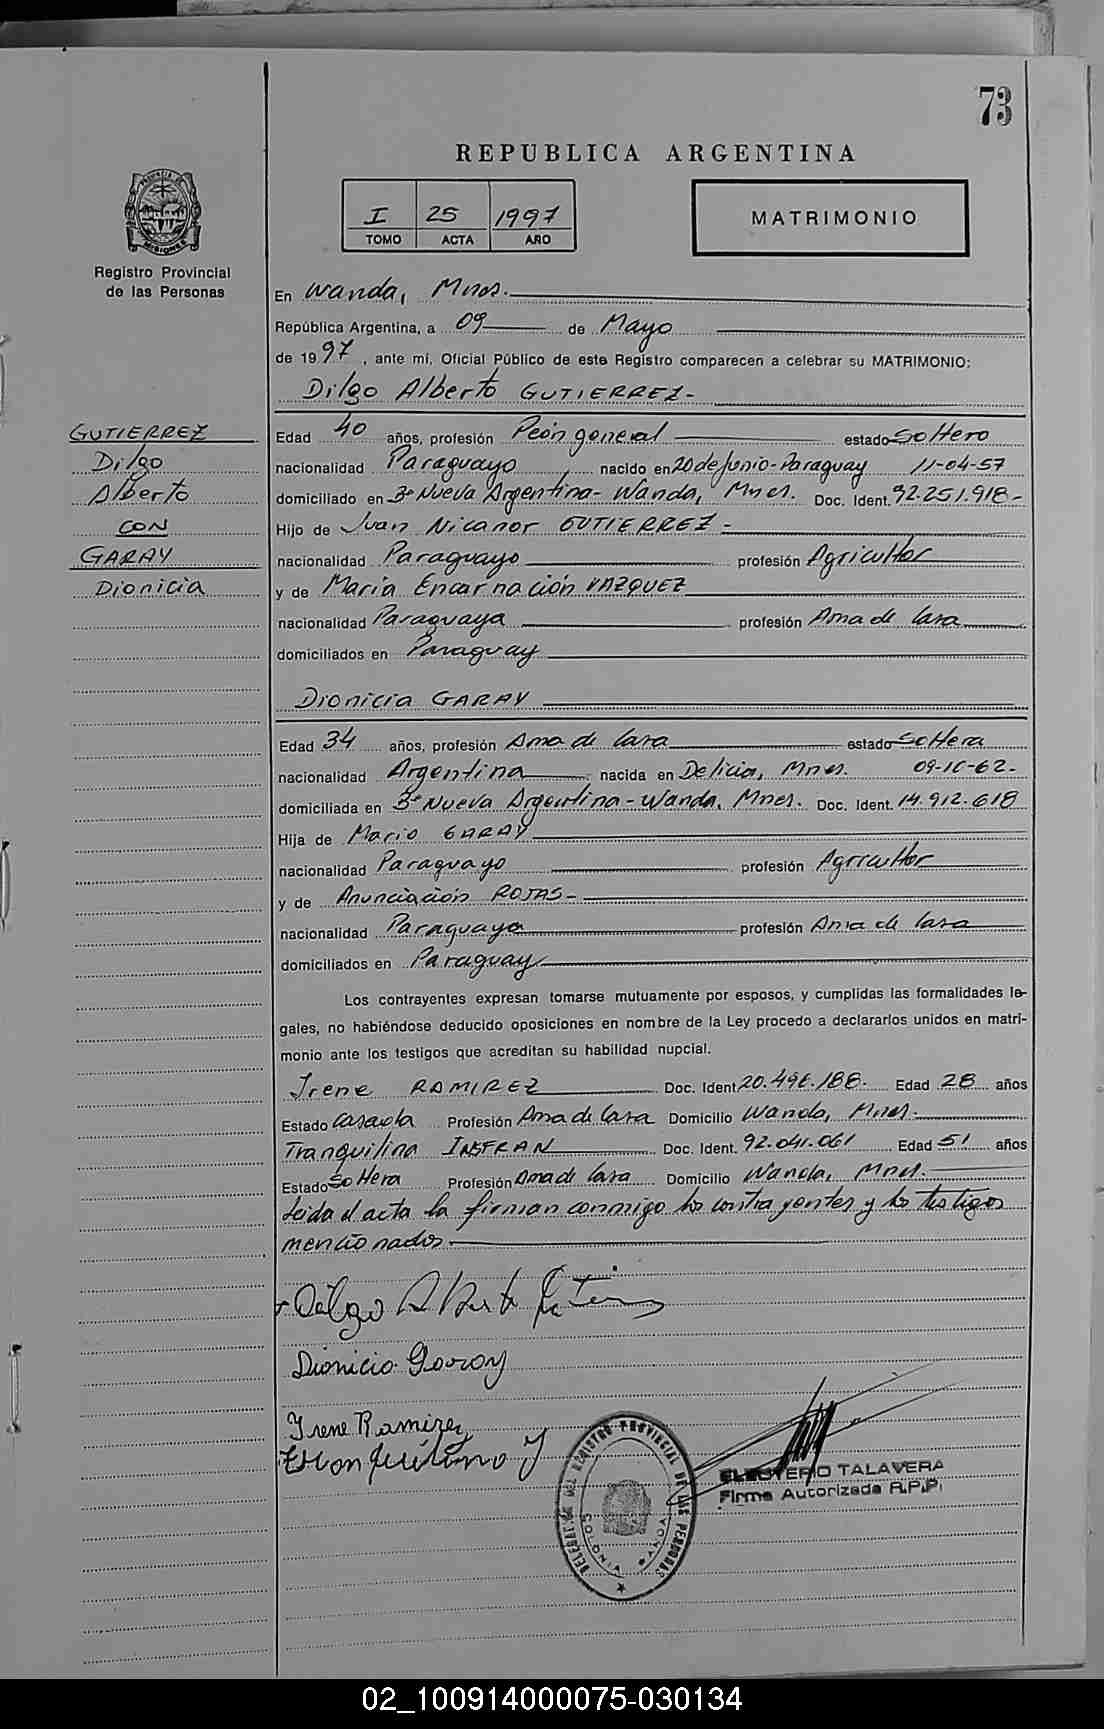 73
REPUBLICA ARGENTINA
I 25 1997
TOMO ACTA AÑO
MATRIMONIO
PROVINCIA DE MISIONES
Registro Provincial
de las Personas
En Wanda, Mnes.
República Argentina, a 09 de Mayo
de 1997, ante mí, Oficial Público de este Registro comparecen a celebrar su MATRIMONIO:
Dilgo Alberto GUTIERREZ-
GUTIERREZ
Dilgo
Alberto
CON
GARAY
Dionicia
Edad 40 años, profesión Peón general estado Soltero
nacionalidad Paraguayo, nacido en 20 de Junio-Paraguay 11-04-57
domiciliado en 3º Nueva Argentina- Wanda, Mnes. Doc. Ident. 92.251.918-
Hijo de Juan Nicanor GUTIERREZ-
nacionalidad Paraguayo profesión Agricultor
y de María Encarnación VAZQUEZ
nacionalidad Paraguaya profesión Ama de Casa
domiciliados en Paraguay
Dionicia GARAY
Edad 34 años, profesión Ama de Casa estado Soltera
nacionalidad Argentina nacida en Delicia, Mnes. 09-10-62-
domiciliada en 3º Nueva Argentina-Wanda, Mnes. Doc. Ident. 14.912.618
Hija de Mario GARAY
nacionalidad Paraguayo profesión Agricultor
y de Anunciación ROJAS-
nacionalidad Paraguaya profesión Ama de Casa
domiciliados en Paraguay
Los contrayentes expresan tomarse mutuamente por esposos, y cumplidas las formalidades le-
gales, no habiéndose deducido oposiciones en nombre de la Ley procedo a declararlos unidos en matri-
monio ante los testigos que acreditan su habilidad nupcial.
Irene RAMIREZ Doc. Ident. 20.496.188. Edad 28 años
Estado Casada Profesión Ama de Casa Domicilio Wanda, Mnes.
Tranquilina INSFRAN Doc. Ident. 92.041.061 Edad 51 años
Estado Soltera Profesión Ama de Casa Domicilio Wanda, Mnes.
Leida el acta la firman conmigo los contrayentes y los testigos
mencionados
Dilgo Alberto
Dionicio Garay
Irene Ramirez
DELEGACION DEL REGISTRO PROVINCIAL DE LAS PERSONAS
COLONIA WANDA
ELEUTERIO TALAVERA
Firma Autorizada R.P.P.
02_100914000075-030134